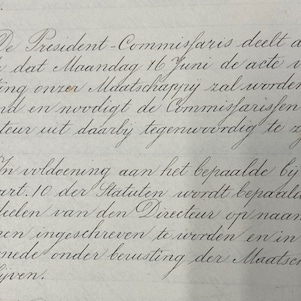 De President-Commissaris deelt a
dat Maandag 16 Juni de acte v
ting onzer Maatschappy zal worden
nd en noodigt de Commissarissen
teur uit daarbij tegenwoordig te z
In voldoening aan het bepaalde bij
art. 10 der Statuten wordt bepaald
deelen van den Directeur op naam
en ingeschreven te worden en in
nede onder berusting der Maatsch
ijven.